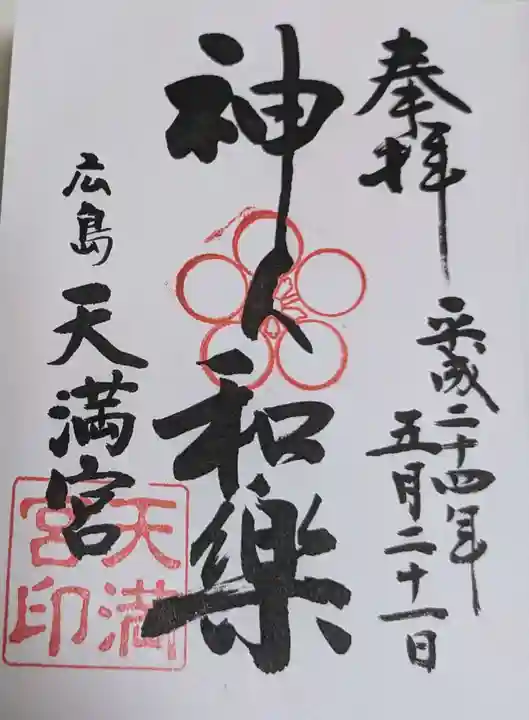 奉拝
平成二十四年
五月二十一日
神人和樂
広島天満宮
天満宮印